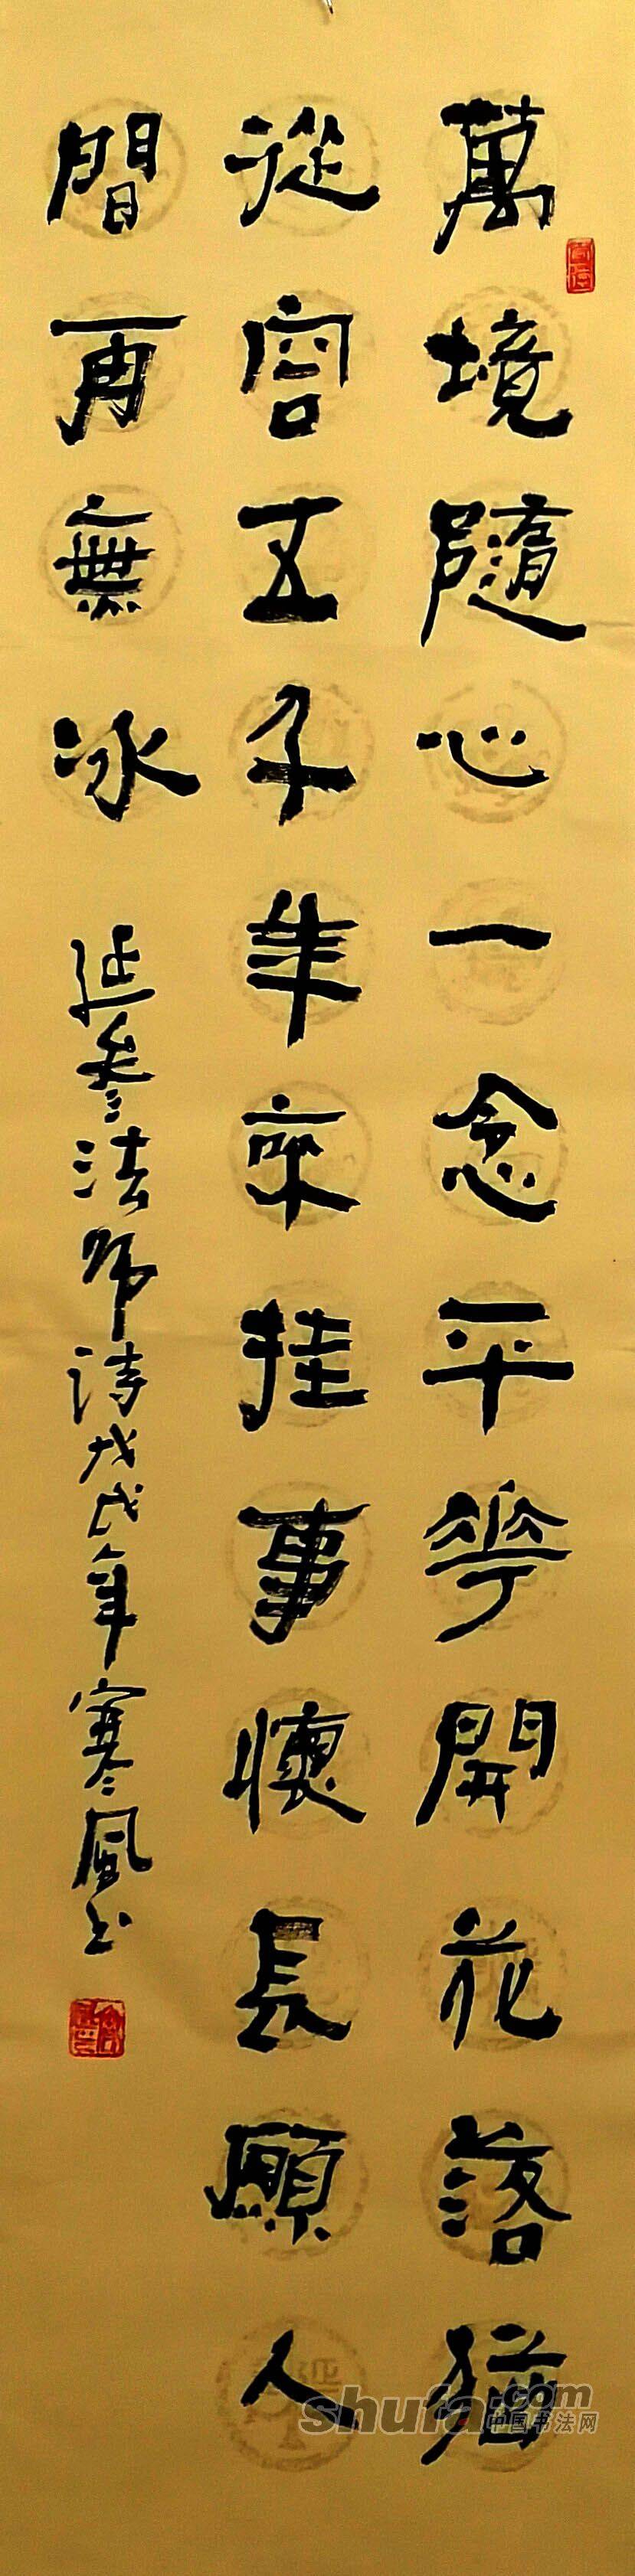 萬境隨心一念平華開花落猶
從容五千年來挂事懷長願人
間再無冰 延參法師詩戊戌年寒風书
shufa.com
中国书法网